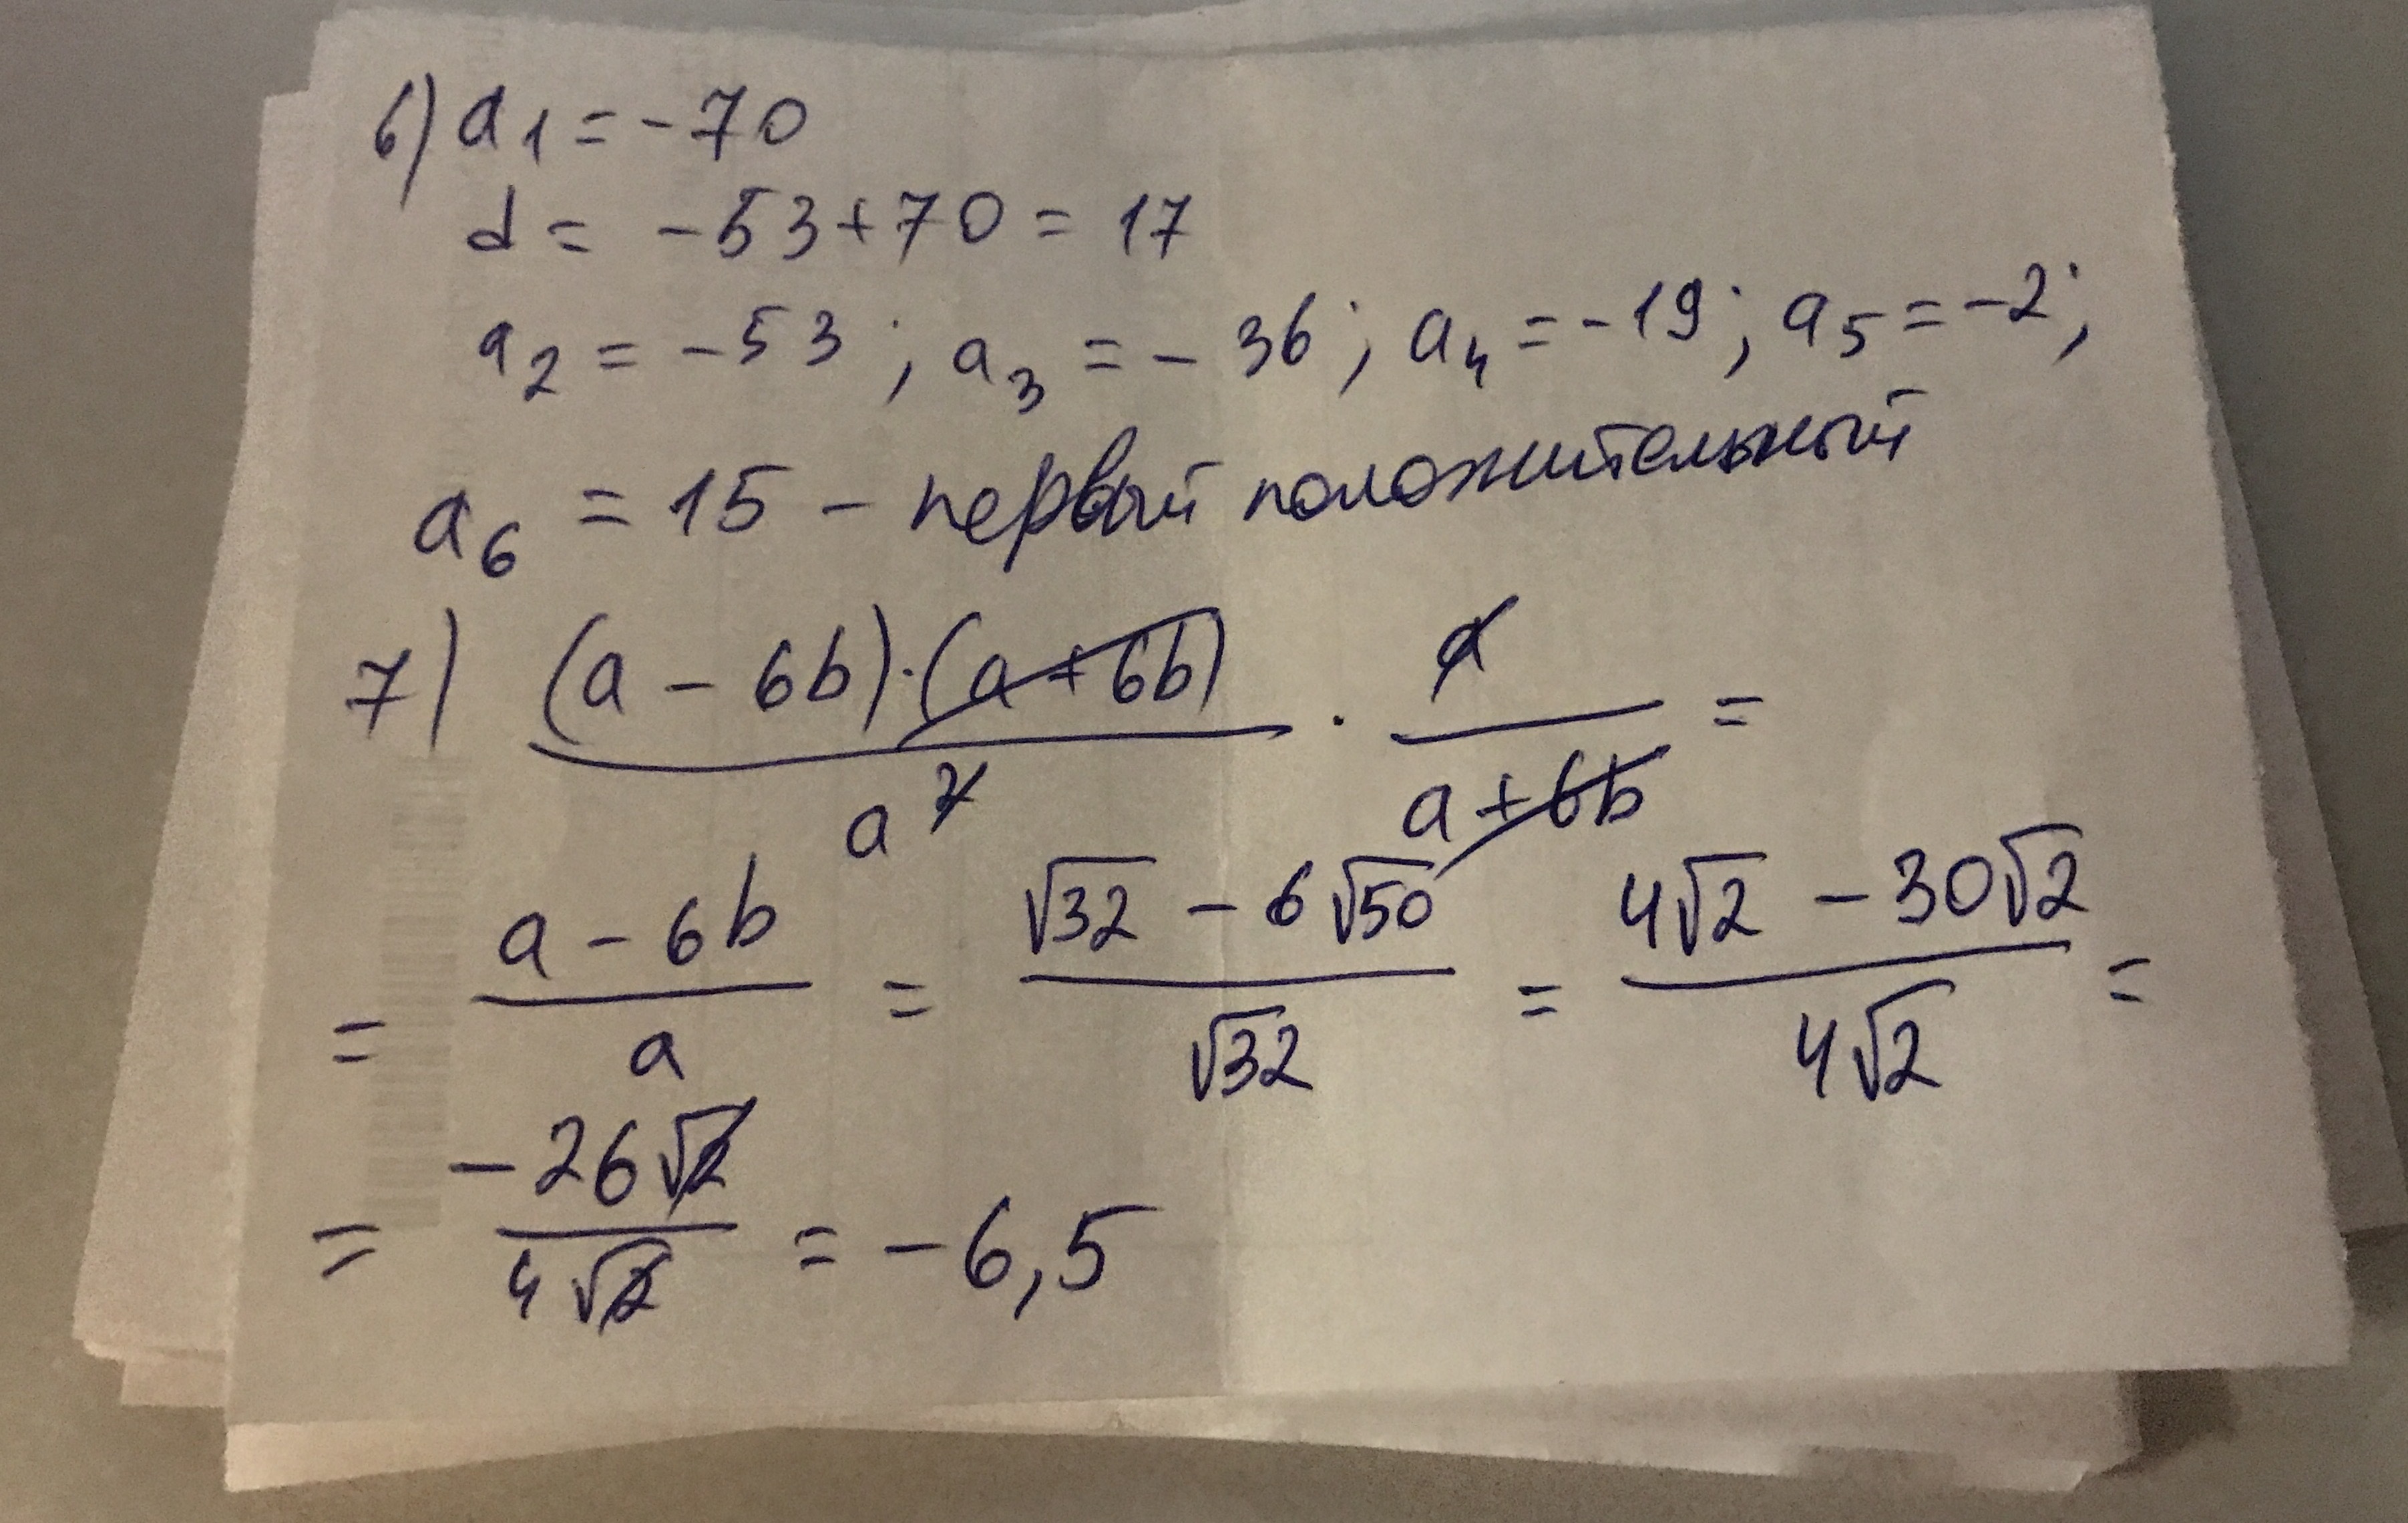 6) a₁ = -70
d = -53 + 70 = 17
a₂ = -53; a₃ = -36; a₄ = -19; a₅ = -2;
a₆ = 15 - первый положительный
7) (a - 6b)·(a + 6b) / a² · a / (a + 6b) =
= (a - 6b) / a = (√32 - 6√50) / √32 = (4√2 - 30√2) / 4√2 =
= -26√2 / 4√2 = -6,5